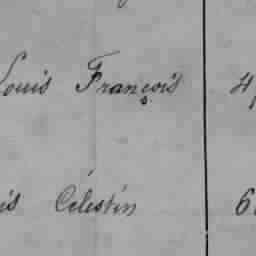 Louis François 4
is Célestin 6